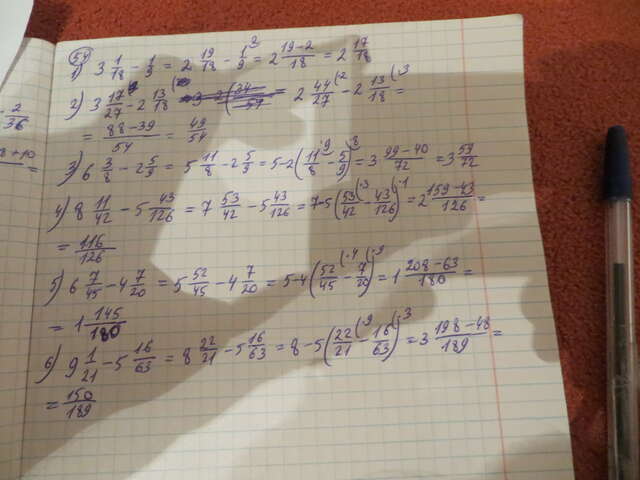 54
1) 3 1/18 - 1/9 = 2 19/18 - 1/9 (2 = 2 19-2/18 = 2 17/18
2) 3 17/27 - 2 13/18 = 2 44/27 (·2 - 2 13/18 (·3 =
= 88-39/54 = 49/54
3) 6 3/8 - 2 5/9 = 5 11/8 - 2 5/9 = 5-2 (11/8 (·9 - 5/9) (·8 = 3 99-40/72 = 3 59/72
4) 8 11/42 - 5 43/126 = 7 53/42 - 5 43/126 = 7-5 (53/42 (·3 - 43/126) (·1 = 2 159-43/126 =
= 116/126
5) 6 7/45 - 4 7/20 = 5 52/45 - 4 7/20 = 5-4 (52/45 (·4 - 7/20) (·9 = 1 208-63/180 =
= 1 145/180
6) 9 1/21 - 5 16/63 = 8 22/21 - 5 16/63 = 8-5 (22/21 (·9 - 16/63) (·3 = 3 198-48/189 =
= 150/189
- 2/36